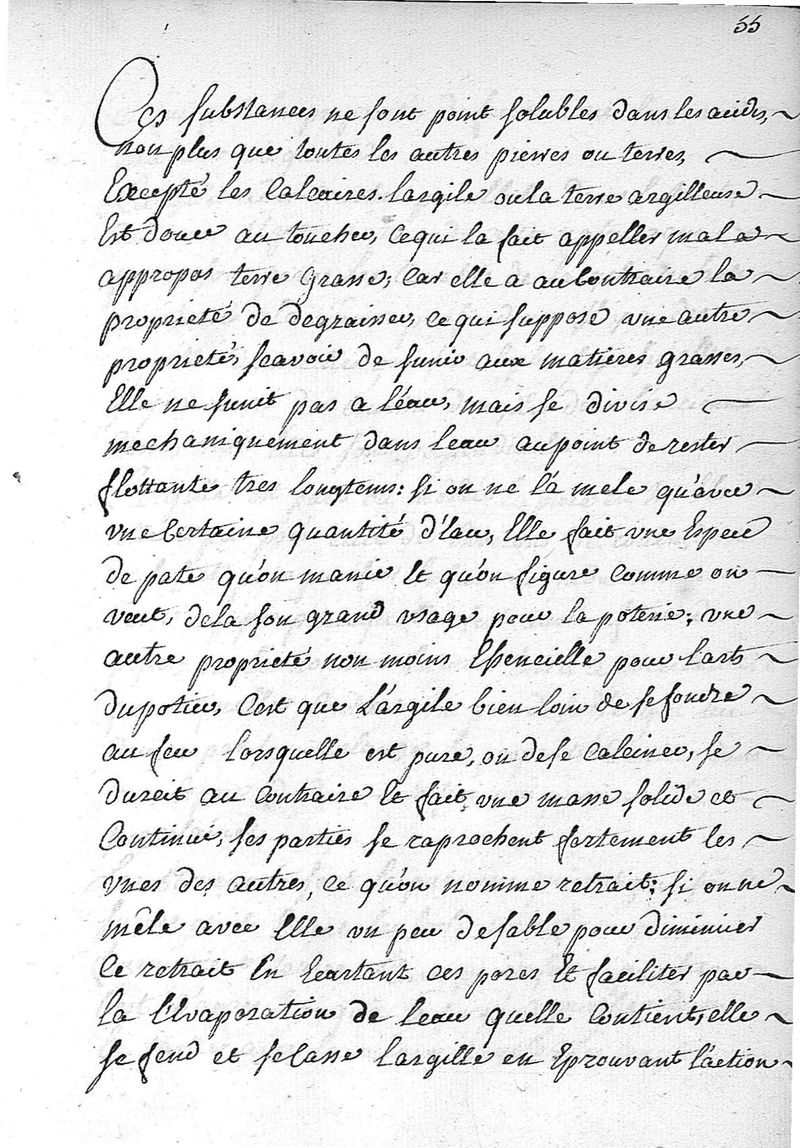 55
Ces substances ne sont point solubles dans les acides,
non plus que toutes les autres pierres ou terres,
Excepté les Calcaires. largile ou la terre argilleuse
Est douce au toucher, ce qui la fait appeller mal a
appropos terre grasse; Car elle a au Contraire la
proprieté de dégraisser, ce qui suppose une autre
proprieté, scavoir de sunir aux matières grasses,
Elle ne sunit pas a léau, mais se divise
mechaniquement dans leau au point de rester
flottante tres longtems: si on ne lá mele qu'avec
une Certaine quantité d'Eau, Elle fait une Espece
de pate qu'on manie Et qu'on figure Comme on
veut, dela son grand usage pour la poterie; une
autre proprieté non moins Essencielle pour lart
du potier, C'est que L'argile bien loin de se fondre
au feu lorsquelle est pure, ou de se Calciner, se
durcit au Contraire Et fait une masse solide et
Continue, ses parties se raprochent fortement les
unes des autres, ce qu'on nomme retrait: si on ne
mêle avec Elle un peu de sable pour diminuer
Ce retrait En Ecartant ces pores Et faciliter par
la l'Evaporation de leau quelle Contient, elle
se fend et se casse largille en Eprouvant l'action